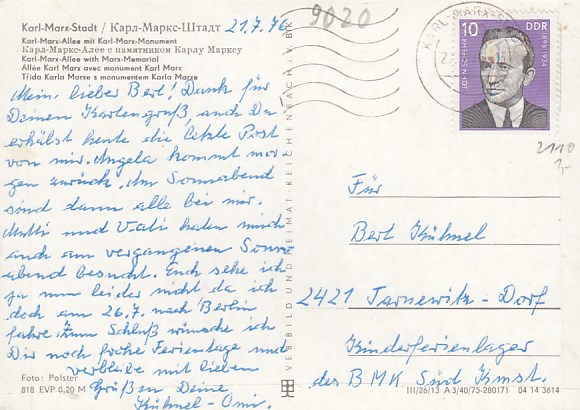 Karl-Marx-Stadt / Карл-Маркс-Штадт
21.7.76
9020
Karl-Marx-Allee mit Karl-Marx-Monument
Карл-Маркс-Алее с памятником Карлу Марксу
Karl-Marx-Allee with Marx-Memorial
Allée Karl Marx avec monument Karl Marx
Třída Karla Marxe s monumentem Karla Marxe
Mein lieber Bert! Dank für
Deinen Kartengruß, auch Du
erhälst heute die letzte Post
von mir. Angela kommt mor-
gen zurück. Am Sonnabend
sind dann alle bei mir.
Mutti und Vati haben mich
auch am vergangenen Sonn-
abend besucht. Euch sehe ich
ja nun leider nicht da ich
doch am 26.7. nach Berlin
fahre. Zum Schluß wünsche ich
Dir noch frohe Ferientage und
verbleibe mit lieben
Grüßen Deine
Kühnel-Omi.
Foto: Polster
818 EVP 0,20 M
VEB BILD UND HEIMAT REICHENBACH i. V. BK
KARL-MARX-
10
DDR
JOHN SCHEHR
1896-1934
2110
1,-
Für
Bert Kühnel
2421 Tarnewitz-Dorf
Kinderferienlager
des BMK Süd Kmst.
III/26/13 A 3/40/75-280171 04 14 3614